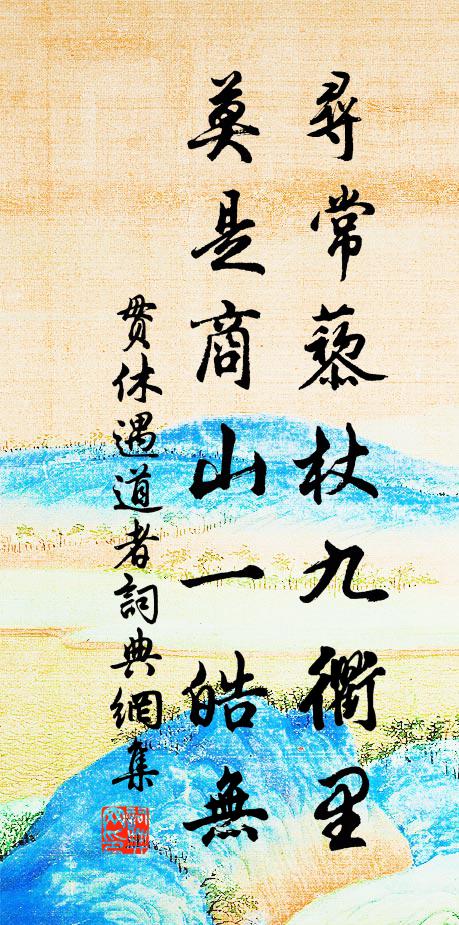 尋常藜杖九衢里
莫是商山一皓無
貫休遇道者詞典網集